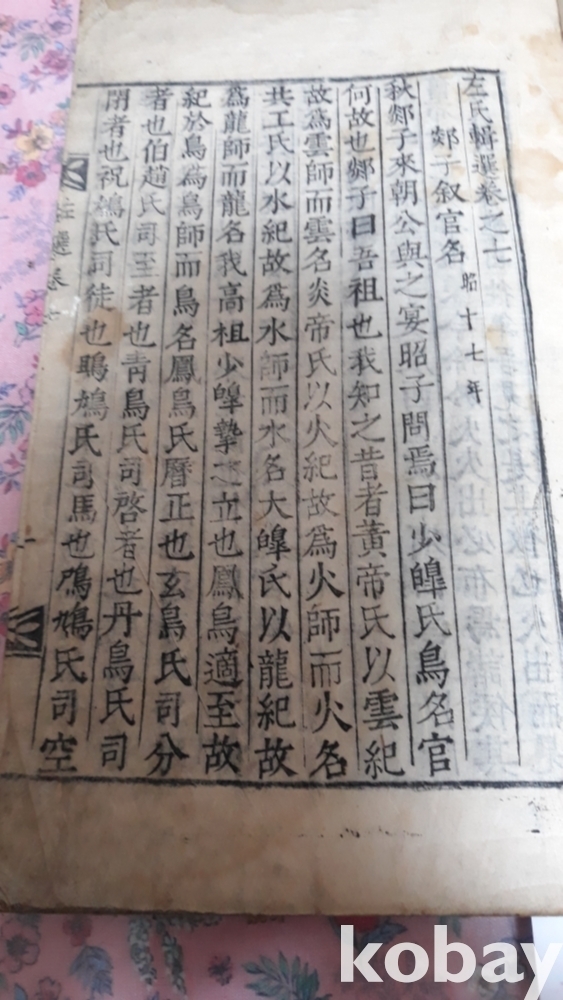 左氏輯選卷之七
郯子叙官名 昭十七年
秋郯子來朝公與之宴昭子問焉曰少皥氏鳥名官
何故也郯子曰吾祖也我知之昔者黃帝氏以雲紀
故爲雲師而雲名炎帝氏以火紀故爲火師而火名
共工氏以水紀故爲水師而水名大皥氏以龍紀故
爲龍師而龍名我高祖少皥摯之立也鳳鳥適至故
紀於鳥爲鳥師而鳥名鳳鳥氏曆正也玄鳥氏司分
者也伯趙氏司至者也靑鳥氏司啓者也丹鳥氏司
閉者也祝鳩氏司徒也鴡鳩氏司馬也鳲鳩氏司空
左選卷七
一
kobay